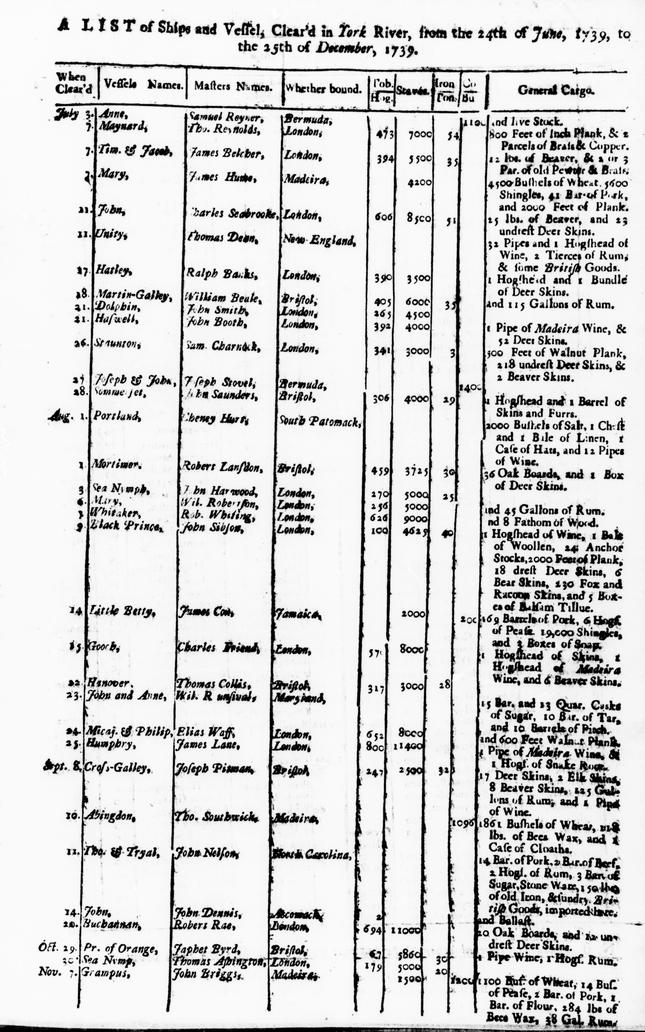 A LIST of Ships and Vessel, Clear'd in York River, from the 24th of June, 1739, to
the 25th of December, 1739.
When Clear'd. Vessels Names. Masters Names. Whether bound. Tob. Hog. Staves. Iron Ton. Co Bu General Cargo.
July 3. Anne, Samuel Reyner, Bermuda, 1100 and live Stock.
7. Maynard, Tho. Reynolds, London, 473 7000 54 800 Feet of Inch Plank, & 2
Parcels of Brass & Copper.
7. Tim. & Jacob, James Belcher, London, 394 5500 35 12 lbs. of Beaver, & 2 or 3
Par. of old Pewter & Brass.
Mary, James Hume, Madeira, 4200 4500 Bushels of Wheat, 5600
Shingles, 41 Bar. of Pork,
and 2000 Feet of Plank.
11. John, Charles Seabrooke, London, 606 8500 51 25 lbs. of Beaver, and 23
undrest Deer Skins.
11. Unity, Thomas Dean, New England, 32 Pipes and 1 Hogshead of
Wine, 2 Tierces of Rum,
& some British Goods.
17. Hatley, Ralph Banks, London, 390 3500 1 Hogshead and 1 Bundle
of Deer Skins.
18. Martin-Galley, William Beule, Bristol, 405 6000 35 and 115 Gallons of Rum.
21. Dolphin, John Smith, London, 265 4500
21. Haswell, John Booth, London, 392 4000 1 Pipe of Madeira Wine, &
52 Deer Skins.
26. Staunton, Sam. Charnock, London, 341 3000 3 500 Feet of Walnut Plank,
218 undrest Deer Skins, &
2 Beaver Skins.
27 Joseph & John, Joseph Stovel, Bermuda, 1400
28. Sommerset, John Saunders, Bristol, 306 4000 29 1 Hogshead and 1 Barrel of
Skins and Furrs.
Aug. 1. Portland, Hurt, South Patomack, 2000 Bushels of Salt, 1 Chest
and 1 Bile of Linen, 1
Case of Hats, and 12 Pipes
of Wine.
1. Mortimer. Robert Lansdon, Bristol, 459 3725 30 36 Oak Boards, and 1 Box
of Deer Skins.
3 Sea Nymph, John Harwood, London, 270 5000 25
6. Mary, Wil. Robertson, London, 256 5000 and 45 Gallons of Rum.
7 Whitaker, Rob. Whiting, London, 626 9000 and 8 Fathom of Wood.
9. Black Prince, John London, 100 4625 40 1 Hogshead of Wine, 1 Bale
of Woollen, 24 Anchor
Stocks, 2000 Feet of Plank,
18 drest Deer Skins, 6
Bear Skins, 230 Fox and
Racoon Skins, and 5 Box-
es of Balsam Tillue.
14. Little Betty, James Cox, Jamaica, 2000 200 169 Barrels of Pork, 6 Hogs.
of Pease, 19,000 Shingles,
and 3 Boxes of Soap.
15. Gooch, Charles Friend, London, 57 8000 1 Hogshead of Skins, 1
Hogshead of Madeira
Wine, and 6 Beaver Skins.
22. Hanover. Thomas Collis, Bristol, 317 3000 28
23. John and Anne, Wil. Maryland, 15 Bar. and 13 Quar. Casks
of Sugar, 10 Bar. of Tar,
and 10 Barrels of Pitch.
24. Micaj. & Philip, Elias Waff, London, 652 8000 and 600 Feet Walnut Plank.
25. Humphry, James Lane, London, 800 11400 1 Pipe of Madeira Wine, &
1 Hogs. of Snake Root.
Sept. 8. Cross-Galley, Joseph Pitman, Bristol, 247 2500 32 17 Deer Skins, 2 Elk Skins,
8 Beaver Skins, 125 Gal-
lons of Rum, and 1 Pipe
of Wine.
10. Abingdon, Tho. Southwick, Madeira, 1096 1861 Bushels of Wheat,
lbs. of Bees Wax, and 1
Case of Cloaths.
11. Tho. & Tryal, John Nelson, North Carolina, 14 Bar. of Pork, 2 Bar. of Beef,
2 Hogs. of Rum, 3 Bar. of
Sugar, Stone Ware, 150 lbs
of old Iron, & sundry Bri-
tish Goods, imported here.
14. John, John Dennis, Accomack, 2 and Ballast.
20. Buchannan, Robert Rae, London, 694 11000 20 Oak Boards, and un-
drest Deer Skins.
Oct. 29. Pr. of Orange, Japhet Byrd, Bristol, 67 5860 30 1 Pipe Wine, 1 Hogs. Rum.
Sea Nymp, Thomas London, 179 5000 20
Nov. 7. Grampus, John Briggs, Madeira, 1500 1200 1100 Bus. of Wheat, 14 Bus.
of Pease, 2 Bar. of Pork, 1
Bar. of Flour, 284 lbs of
Bees Wax, 38 Gal. Rum.